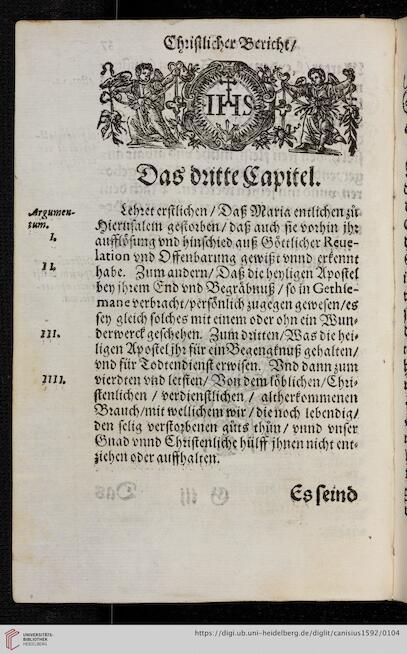 Christlicher Bericht/
IHS
Das dritte Capitel.
Argumentum.
I.
II.
III.
IIII.
Lehret erstlichen / Daß Maria entlichen zů
Hierusalem gestorben / daß auch sie vorhin jhr
aufflösung vnd hinschied auß Göttlicher Reue-
lation vnd Offenbarung gewißt vnnd erkennt
habe. Zum andern / Daß die heyligen Apostel
bey jhrem End vnd Begräbnuß / so in Gethse-
mane verbracht / persönlich zugegen gewesen / es
sey gleich solches mit einem oder ohn ein Wun-
derwerck geschehen. Zum dritten / Was die hei-
ligen Apostel jhr für ein Begengknuß gehalten /
vnd für Todtendienst erwisen. Vnd dann zum
vierdten vnd letsten / Von dem löblichen / Chri-
stenlichen / verdienstlichen / altherkommenen
Brauch / mit wellichem wir / die noch lebendig /
den selig verstorbenen gůts thůn / vnnd vnser
Gnad vnnd Christenliche hülff jhnen nicht ent-
ziehen oder auffhalten.
Es seind
UNIVERSITÄTS-
BIBLIOTHEK
HEIDELBERG
https://digi.ub.uni-heidelberg.de/diglit/canisius1592/0104